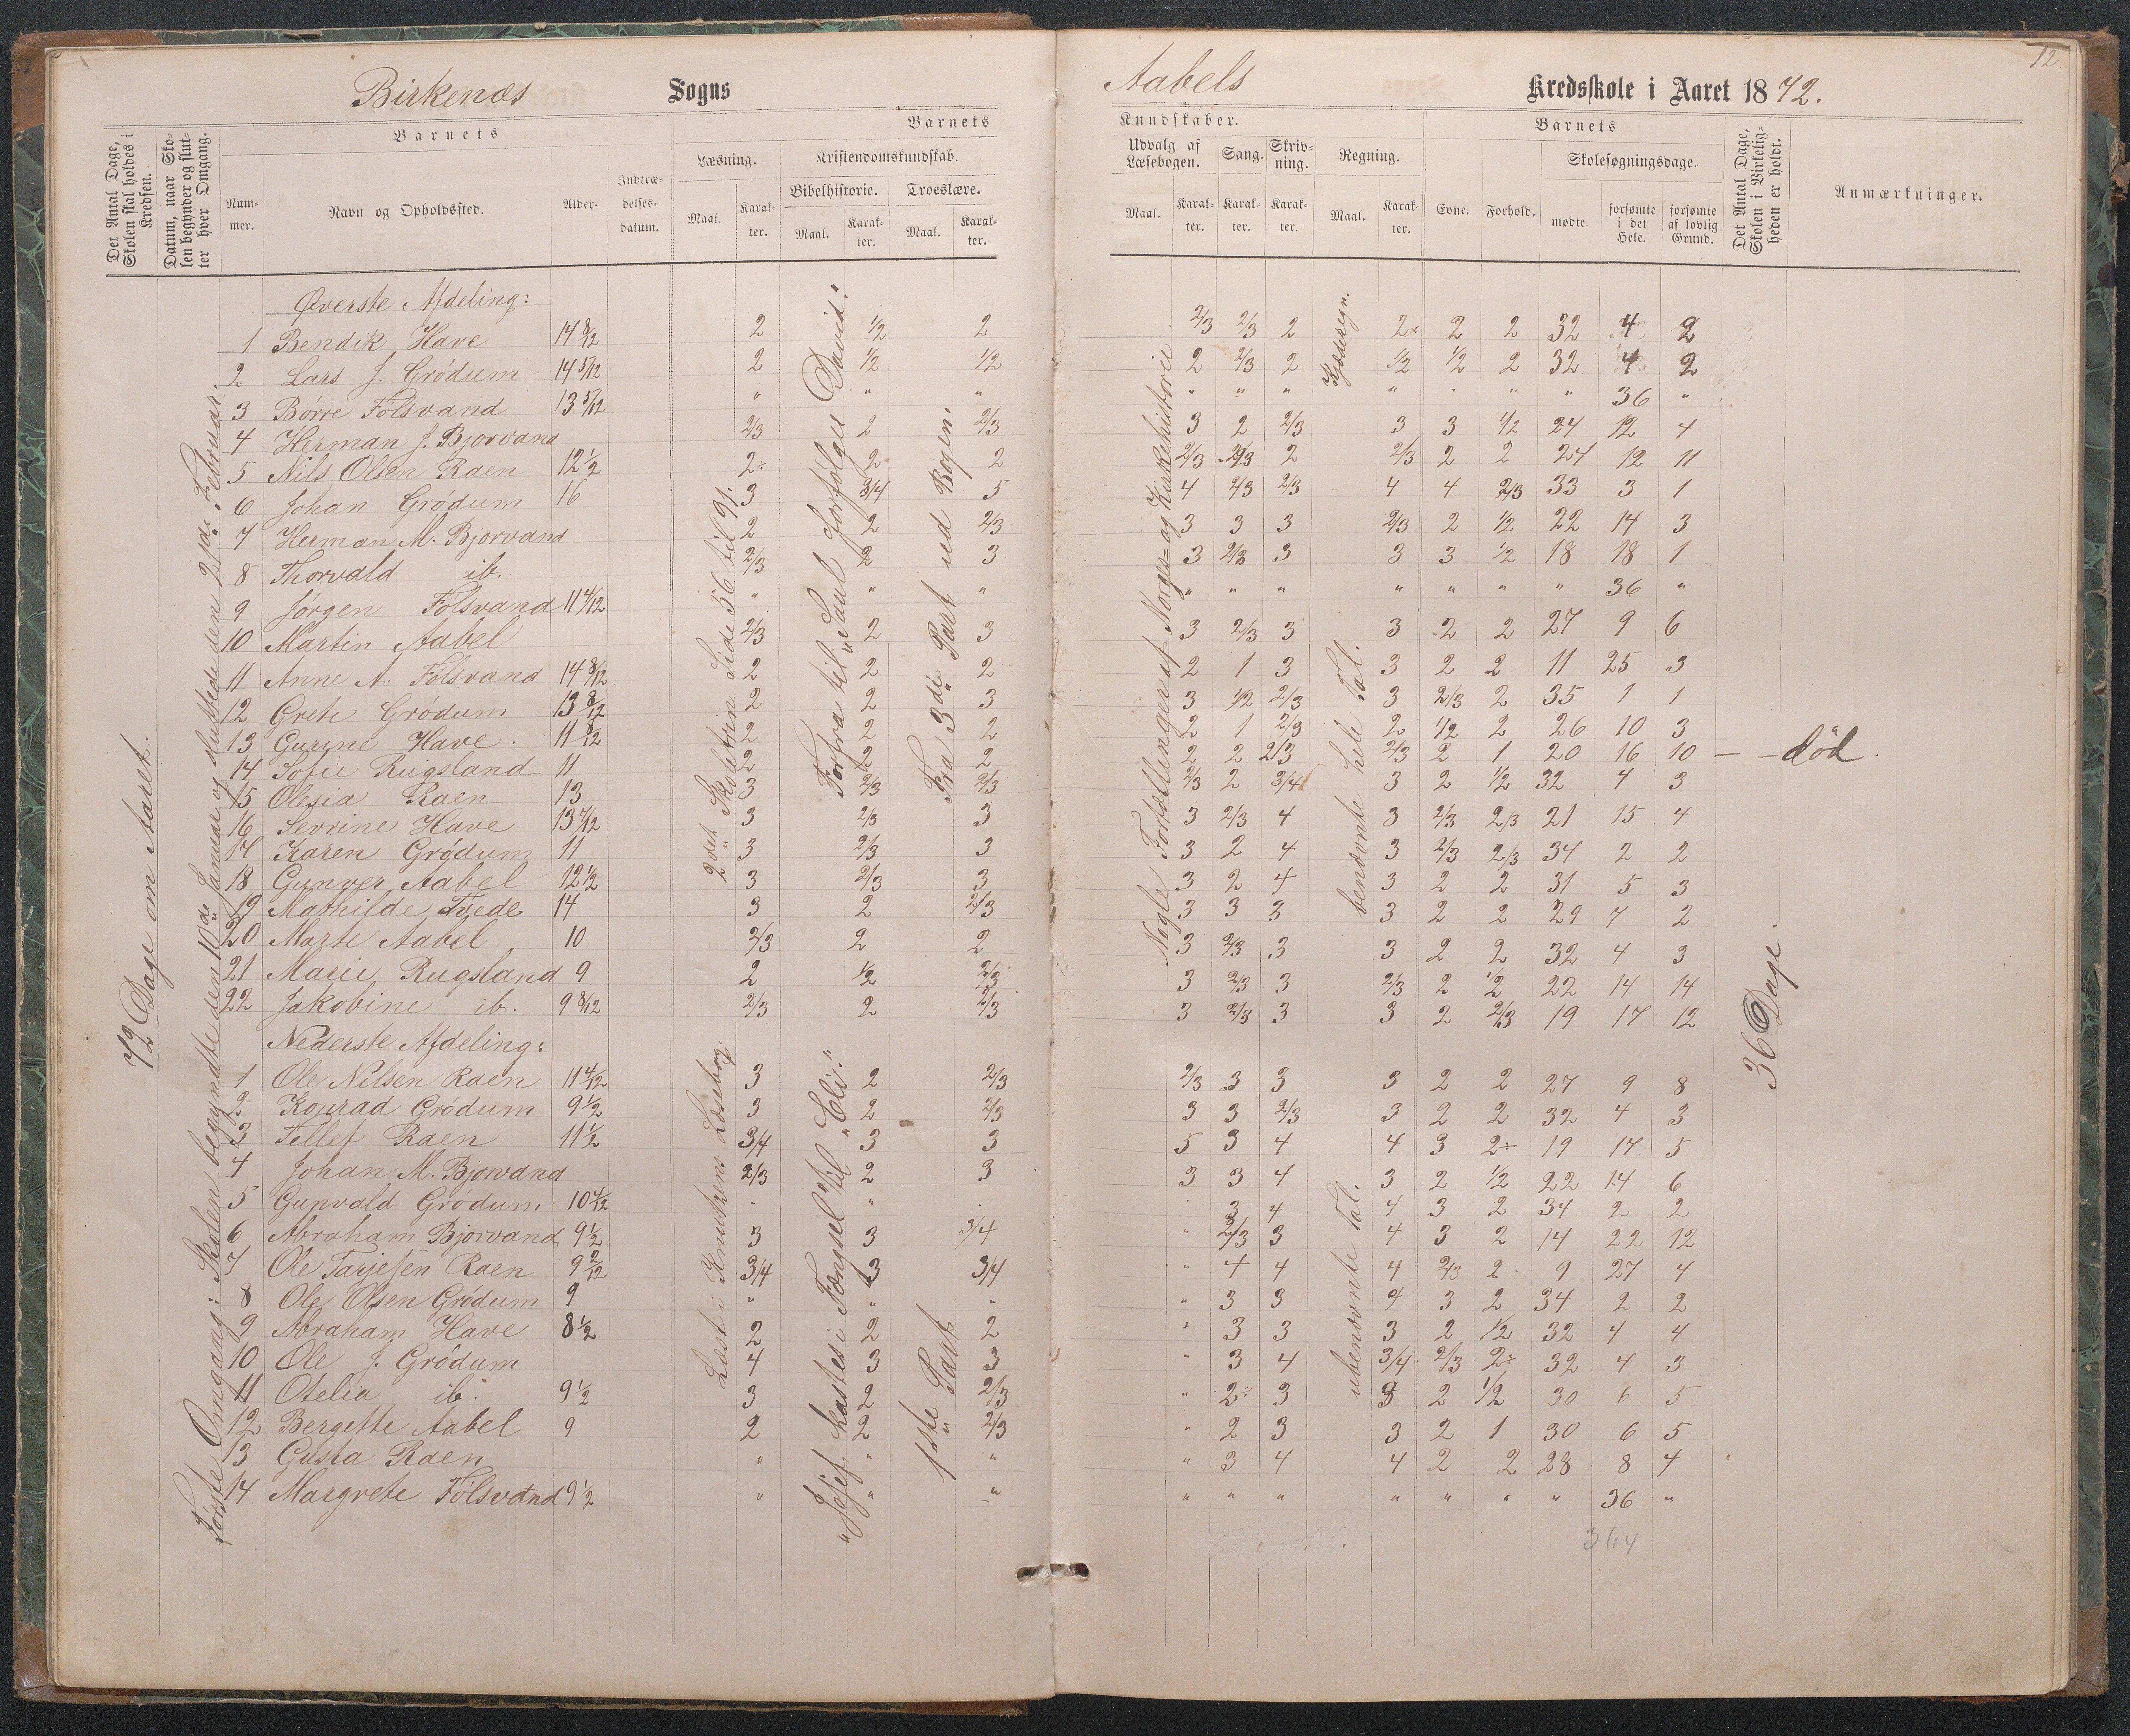 Birkenæs Sogns
Aabels Kredsskole i Aaret 1872.
12
Det Antal Dage, Skolen skal holdes i Kredsen.
Datum, naar Skolen begynder og slutter hver Omgang.
Barnets
Nummer.
Navn og Opholdssted.
Alder.
Indtrædelsesdatum.
Barnets
Læsning.
Maal.
Karakter.
Kristendomskundskab.
Bibelhistorie.
Maal.
Karakter.
Troeslære.
Maal.
Karakter.
Kundskaber.
Udvalg af Læsebogen.
Maal.
Karakter.
Sang.
Karakter.
Skrivning.
Karakter.
Regning.
Maal.
Karakter.
Barnets
Evne.
Forhold.
Skolesøgningsdage.
mødte.
forsømte i det Hele.
forsømte af lovlig Grund.
Det Antal Dage, Skolen i Virkeligheden er holdt.
Anmærkninger.
72 Dage om Aaret.
Første Omgang: Skolen begyndte den 10de Januar og sluttede den 2den Februar.
2det Skoletrin Side 56 til 91.
Forfra til "Saul forfølger David."
Fra 3die Part ud Bogen.
Nogle Fortællinger af Norges- og Kirkehistorie
Kjæderegn.
benævnte hele Tal.
36 Dage.
Øverste Afdeling:
1 Bendik Have 14 8/12 2 1/2 2 2/3 2/3 2 2 2 2 32 4 2
2 Lars J. Grødum 14 5/12 2 1/2 1/2 2 2/3 2 1/2 1/2 2 32 4 2
3 Børre Følsvand 13 5/12 " " " " " " " " " " 36 "
4 Herman J. Bjorvand 2/3 2 2/3 3 2 2/3 3 3 1/2 24 12 4
5 Nils Olsen Raen 12 1/2 2÷ 2 2 2/3 2/3 2 2/3 2 2 24 12 11
6 Johan Grødum 16 3 3/4 5 4 2/3 2/3 4 4 2/3 33 3 1
7 Herman M. Bjorvand 2 2 2/3 3 3 3 2/3 2 1/2 22 14 3
8 Thorvald ib. 2/3 2 3 3 2/3 3 3 3 1/2 18 18 1
9 Jørgen Følsvand 11 4/12 " " " " " " " " " " 36 "
10 Martin Aabel 2/3 2 3 3 2/3 3 3 2 2 27 9 6
11 Anne A. Følsvand 14 8/12 2 2 2 2 1 3 3 2 2 11 25 3
12 Grete Grødum 13 8/12 2 2 3 3 1/2 2/3 3 2/3 2 35 1 1
13 Gurine Have. 11 8/12 2 2 2 2 1 2/3 2 1/2 2 26 10 3
14 Sofie Rugsland 11 2 2 2 2 2 2/3 2/3 2 1 20 16 10 — død.
15 Olesia Raen 13 3 2/3 2/3 2/3 2 3/4 3 2 1/2 32 4 3
16 Sevrine Have 13 7/12 3 2/3 3 3 2/3 4 3 2/3 2/3 21 15 4
17 Karen Grødum 11 3 2/3 3 3 2 4 3 2/3 2/3 34 2 2
18 Gunver Aabel 12 1/2 3 2/3 3 3 2 4 3 2 2 31 5 3
19 Mathilde Tvede 14 3 2 2/3 3 3 3 3 2 2 29 7 2
20 Marte Aabel 10 2/3 2 2 3 2/3 3 3 2 2 32 4 3
21 Marie Rugsland 9 2 1/2 2/3 3 2/3 3 2/3 2 1/2 22 14 14
22 Jakobine ib. 9 8/12 2/3 2 2/3 3 2/3 3 3 2 2/3 19 17 12
Nederste Afdeling:
Læst i Knutzens Læsebog.
"Josef kastes i Fængsel" til "Eli."
1ste Part
ubenævnte Tal.
1 Ole Nilsen Raen 11 4/12 3 2 2/3 2/3 3 3 3 2 2 27 9 8
2 Konrad Grødum 9 1/2 3 2 2/3 3 3 2/3 3 2 2 32 4 3
3 Tellef Raen 11 1/2 3/4 3 3 5 3 4 4 3 2÷ 19 17 5
4 Johan M. Bjorvand 2/3 2 3 3 3 4 3 2 1/2 22 14 6
5 Gunvald Grødum 10 4/12 " " " " 3 4 4 3 2 34 2 2
6 Abraham Bjorvand 9 1/2 3 3 3/4 " 2/3 3 4 3 2 14 22 12
7 Ole Tarjesen Raen 9 2/12 3/4 3 3/4 " 4 4 4 2/3 2 9 27 4
8 Ole Olsen Grødum 9 " " " " 3 3 4 3 2 34 2 2
9 Abraham Have 8 1/2 2 2 2 " 3 3 3 2 1/2 32 4 4
10 Ole J. Grødum 4 3 3 " 3 4 3/4 2/3 2÷ 32 4 3
11 Otelia ib. 9 1/2 3 2 2/3 " 2÷ 3 3 2 1/2 30 6 5
12 Bergette Aabel 9 2 2 2/3 " 2 3 3 2 1 30 6 5
13 Gusta Raen " " " " 3 4 4 2 2 28 8 4
14 Margrete Følsvand 9 1/2 " " " " " " " " " " 36 "
364